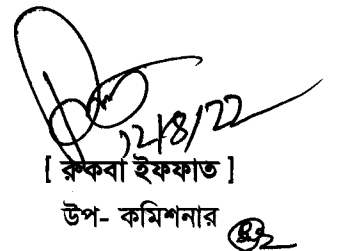 12/8/22
[ রুকবা ইফফাত ]
উপ- কমিশনার